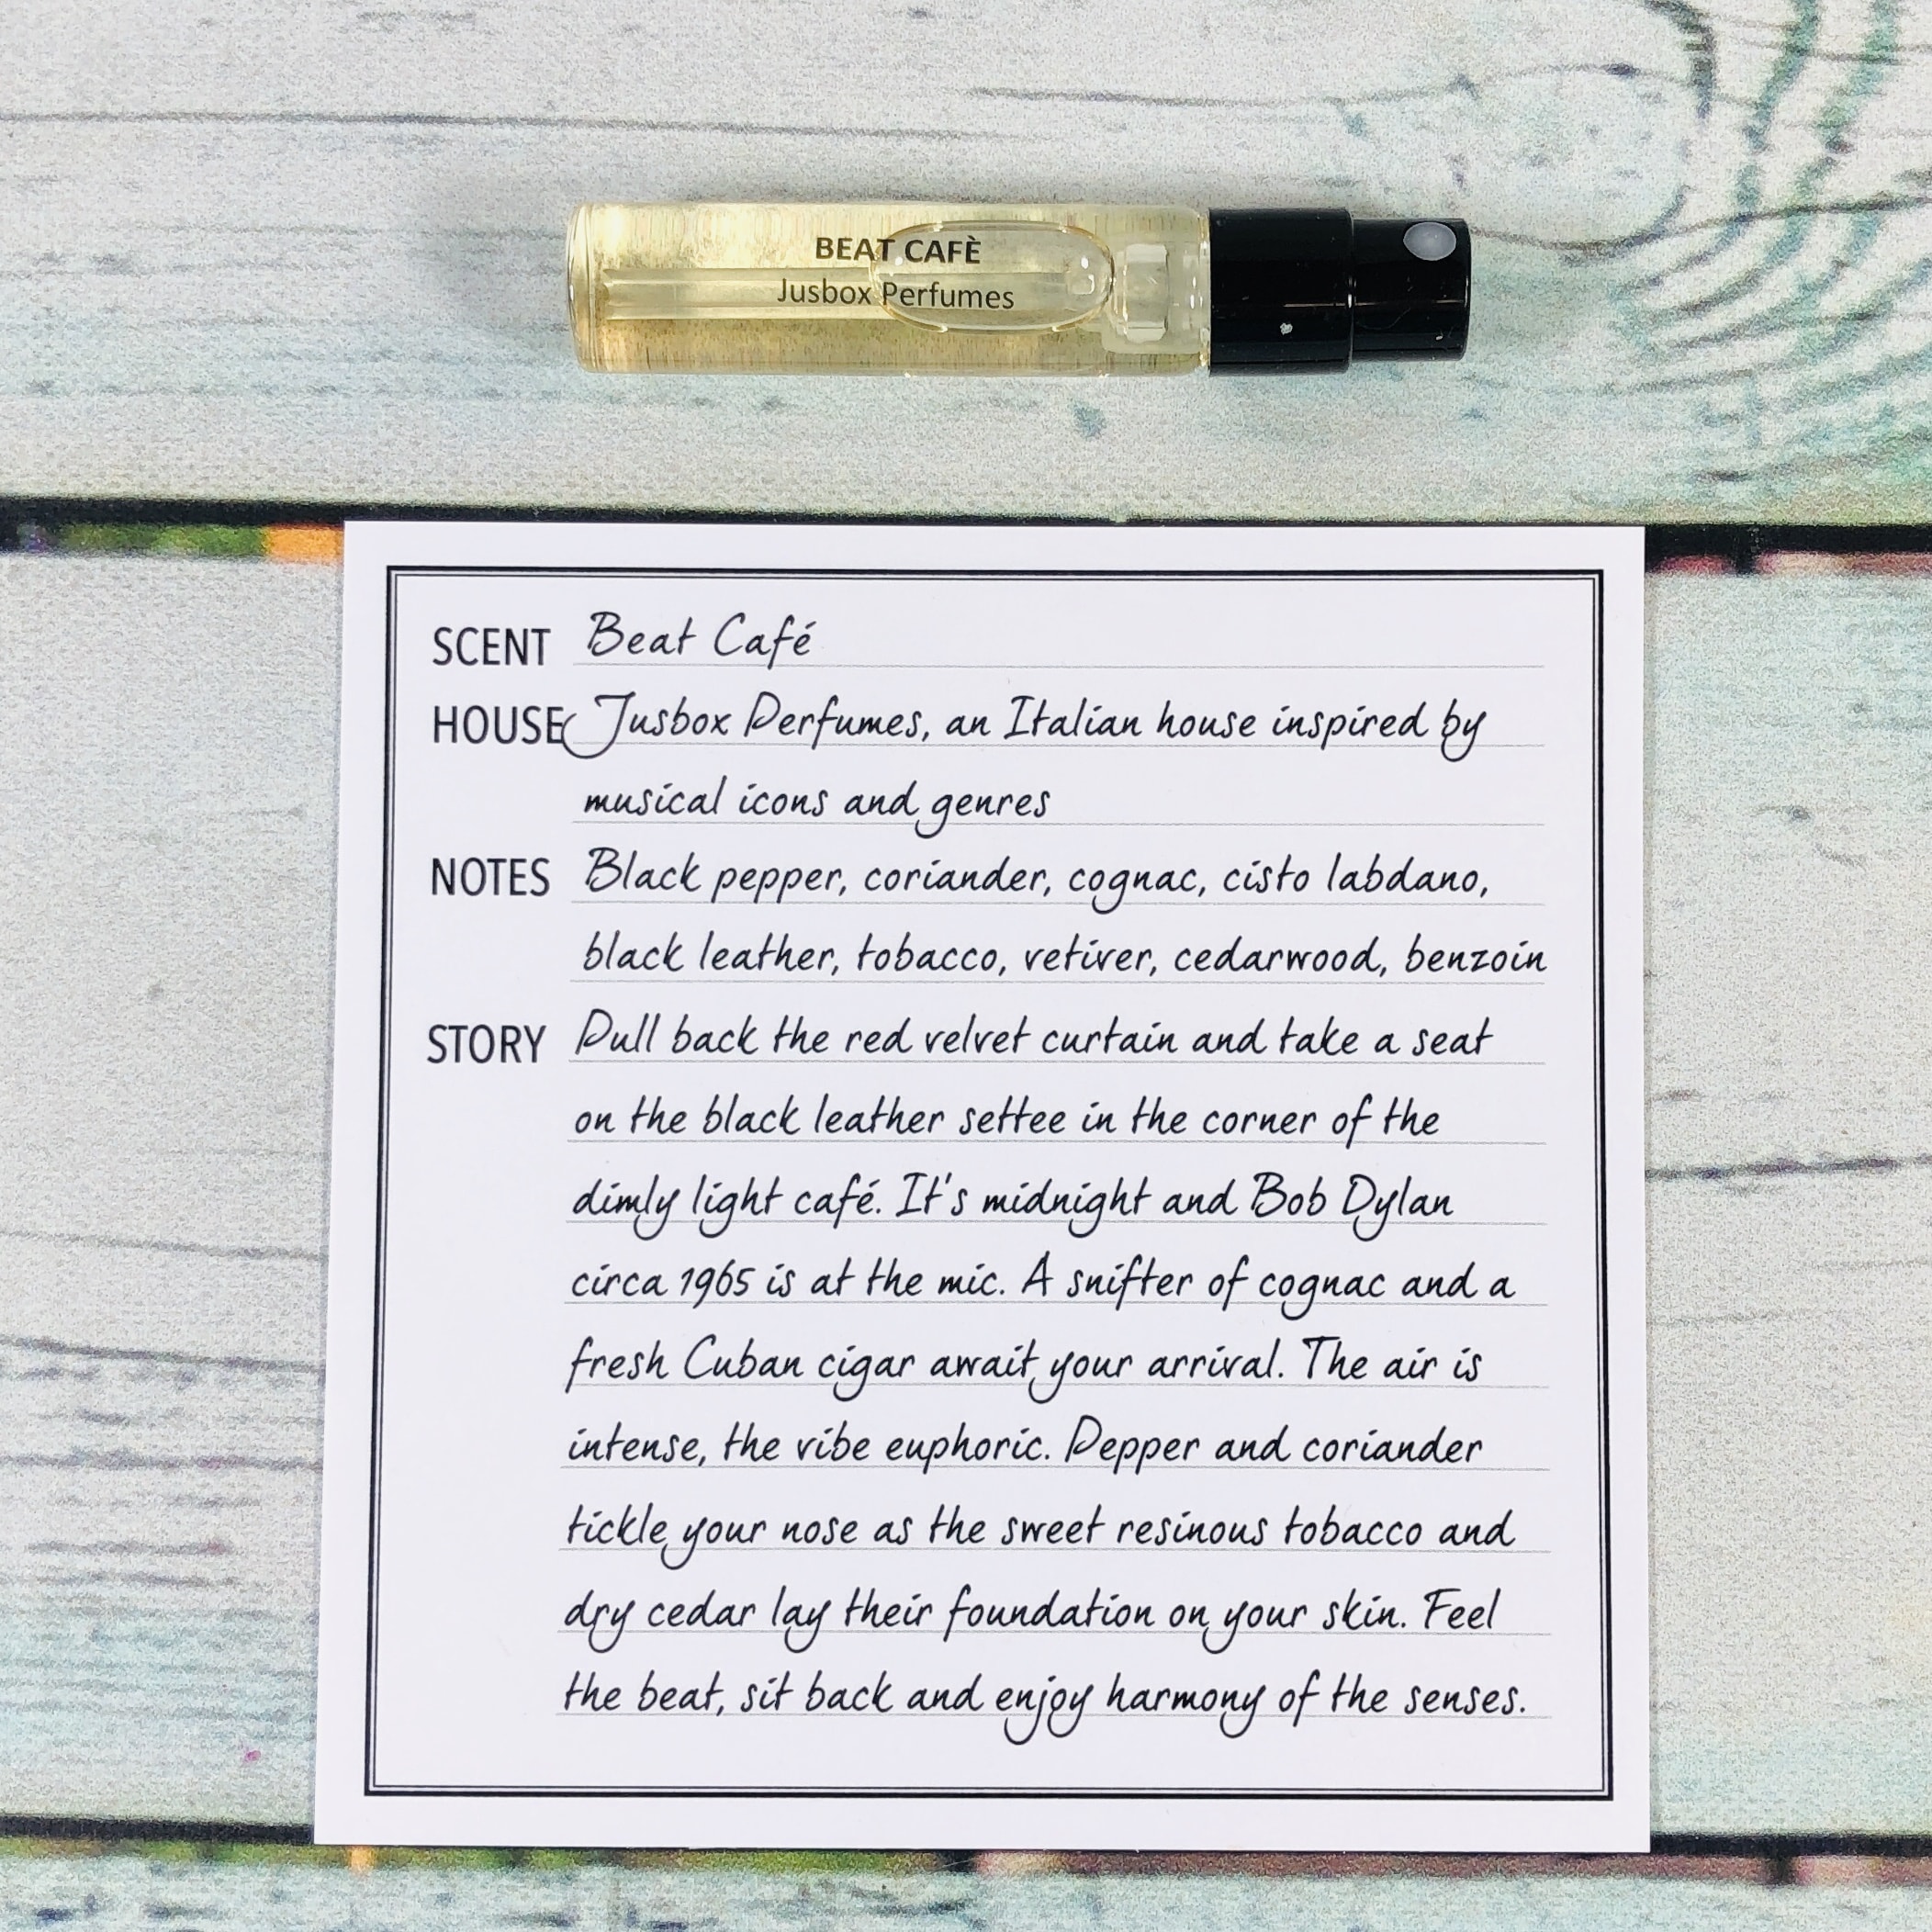 BEAT CAFÈ
Jusbox Perfumes
SCENT Beat Café
HOUSE Jusbox Perfumes, an Italian house inspired by
musical icons and genres
NOTES Black pepper, coriander, cognac, cisto labdano,
black leather, tobacco, vetiver, cedarwood, benzoin
STORY Pull back the red velvet curtain and take a seat
on the black leather settee in the corner of the
dimly light café. It's midnight and Bob Dylan
circa 1965 is at the mic. A snifter of cognac and a
fresh Cuban cigar await your arrival. The air is
intense, the vibe euphoric. Pepper and coriander
tickle your nose as the sweet resinous tobacco and
dry cedar lay their foundation on your skin. Feel
the beat, sit back and enjoy harmony of the senses.